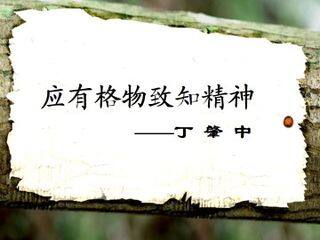 应有格物致知精神
——丁肇中